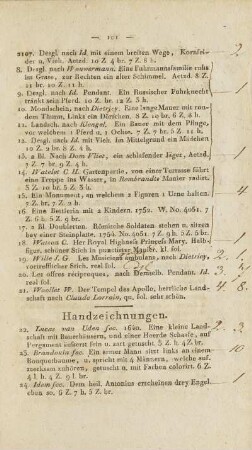 — 101 —
2107. Desgl. nach Id. mit einem breiten Wege, Kornfelder u. Vieh. Aetzd. 10 Z. 4 br. 7 Z. 8 h. 2
8. Desgl. nach Wouvermann. Eine Fuhrmannsfamilie ruht im Grase, zur Rechten ein alter Schimmel. Aetzd. 8 Z. 11 br. 9 Z. h.
9. Desgl. nach Id. Pendant. Ein Russischer Fuhrknecht tränkt sein Pferd. 10 Z. br. 12 Z. h.
10. Mondschein, nach Dietricy. Eine lange Mauer mit rundem Thurm, Links ein Dörfchen. 8 Z. 5 br. 6 Z. h.
11. Landsch. nach Klengel. Ein Bauer mit dem Pfluge, vor welchem 1 Pferd u. 1 Ochse. 7 Z. br. 5 Z. 6 h.
12. Desgl. nach Id. mit Vieh. Im Mittelgrund ein Mädchen 10 Z. br. 8 Z. 4 h.
13. 2 Bl. Nach Dom Flioc, ein schlafender Jäger, Aetzd. 7 Z. br. 5 Z. 4 h. 1
14. Watelet C. H. Gartenparthie, von einer Terrasse führt eine Treppe ins Wasser, in Rembrandts Manier radirt. 6 Z. br. 4 Z. h. 1
15. Ein Monument, an welchem 2 Figuren 1 Urne halten. 7 Z. br. 4 Z. h.
16. Eine Bettlerin mit 2 Kindern. 1752. W. No. 4061. 7 Z. h. 6 Z. br.
17. 2 Bl. Doubletten. Römische Soldaten stehen u. sitzen bey einer Steinplatte. 1765. No. 4061. 7 Z. h. 5 Z. br.
18. Watson C. Her Royal Highness Princess Mary, Halbfigur, schöner Stich in punctirter Manier. kl. fol.
19. Wille J. G. Les Musiciens ambulans, nach Dietricy, vortrefflicher Stich, real fol.
20. Les offres reciproques, nach Demselb. Pendant. Id. real fol.
21. Woollet W. Der Tempel des Apollo, herrliche Landschaft nach Claude Lorrain, qu. fol. sehr schön. 4 8
Handzeichnungen.
22. Lucas van Uden fec. 1640. Eine kleine Landschaft mit Bauerhäusern, und einer Heerde Schaafe, auf Pergament äußerst fein u. zart getuscht 5 Z. br. 4 Z. h. 2
23. Brandouin fec. Ein armer Mann sitzt links an einem Baume, u. spricht mit 4 Männern, welche auf einem Kahne stehen, getuscht u. mit Farben colorirt. 6 Z. 4 h. 9 Z. 4 br. 3 10
24. Idem fec. Dem heil. Antonius erscheinen drey Engelchen 6 Z. 9 h. 8 Z. 6 br. 1